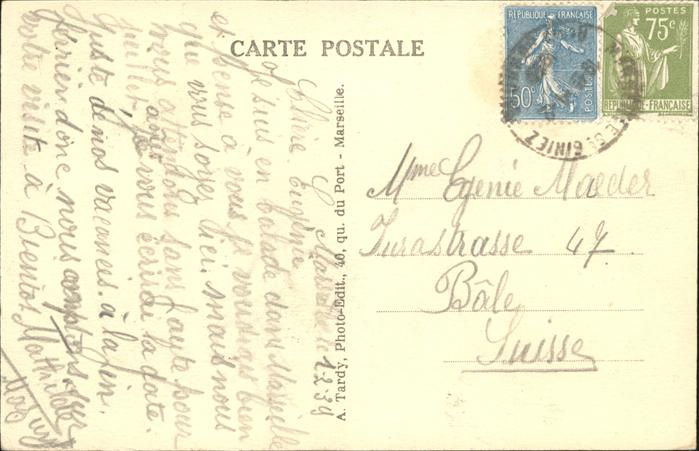 CARTE POSTALE
RÉPUBLIQUE FRANÇAISE
50c
POSTES
POSTES
75c
RÉPUBLIQUE-FRANÇAISE
MARSEILLE St GINIEZ
A. Tardy, Photo-Edit., 40, qu. du Port - Marseille.
Mme Egenie Maeder
Jurastrasse 47
Bâle
Suisse
Marseille 1-2-39
Chère Eugénie
Je suis en balade dans Marseille
et pense à vous je voudrais bien
que vous soyez ici mais nous
vous attendons sans faute pour
juillet août je vous écrirai la date
juste de nos vacances à la fin.
donc nous comptons sur
votre visite à Bientot Mathilde